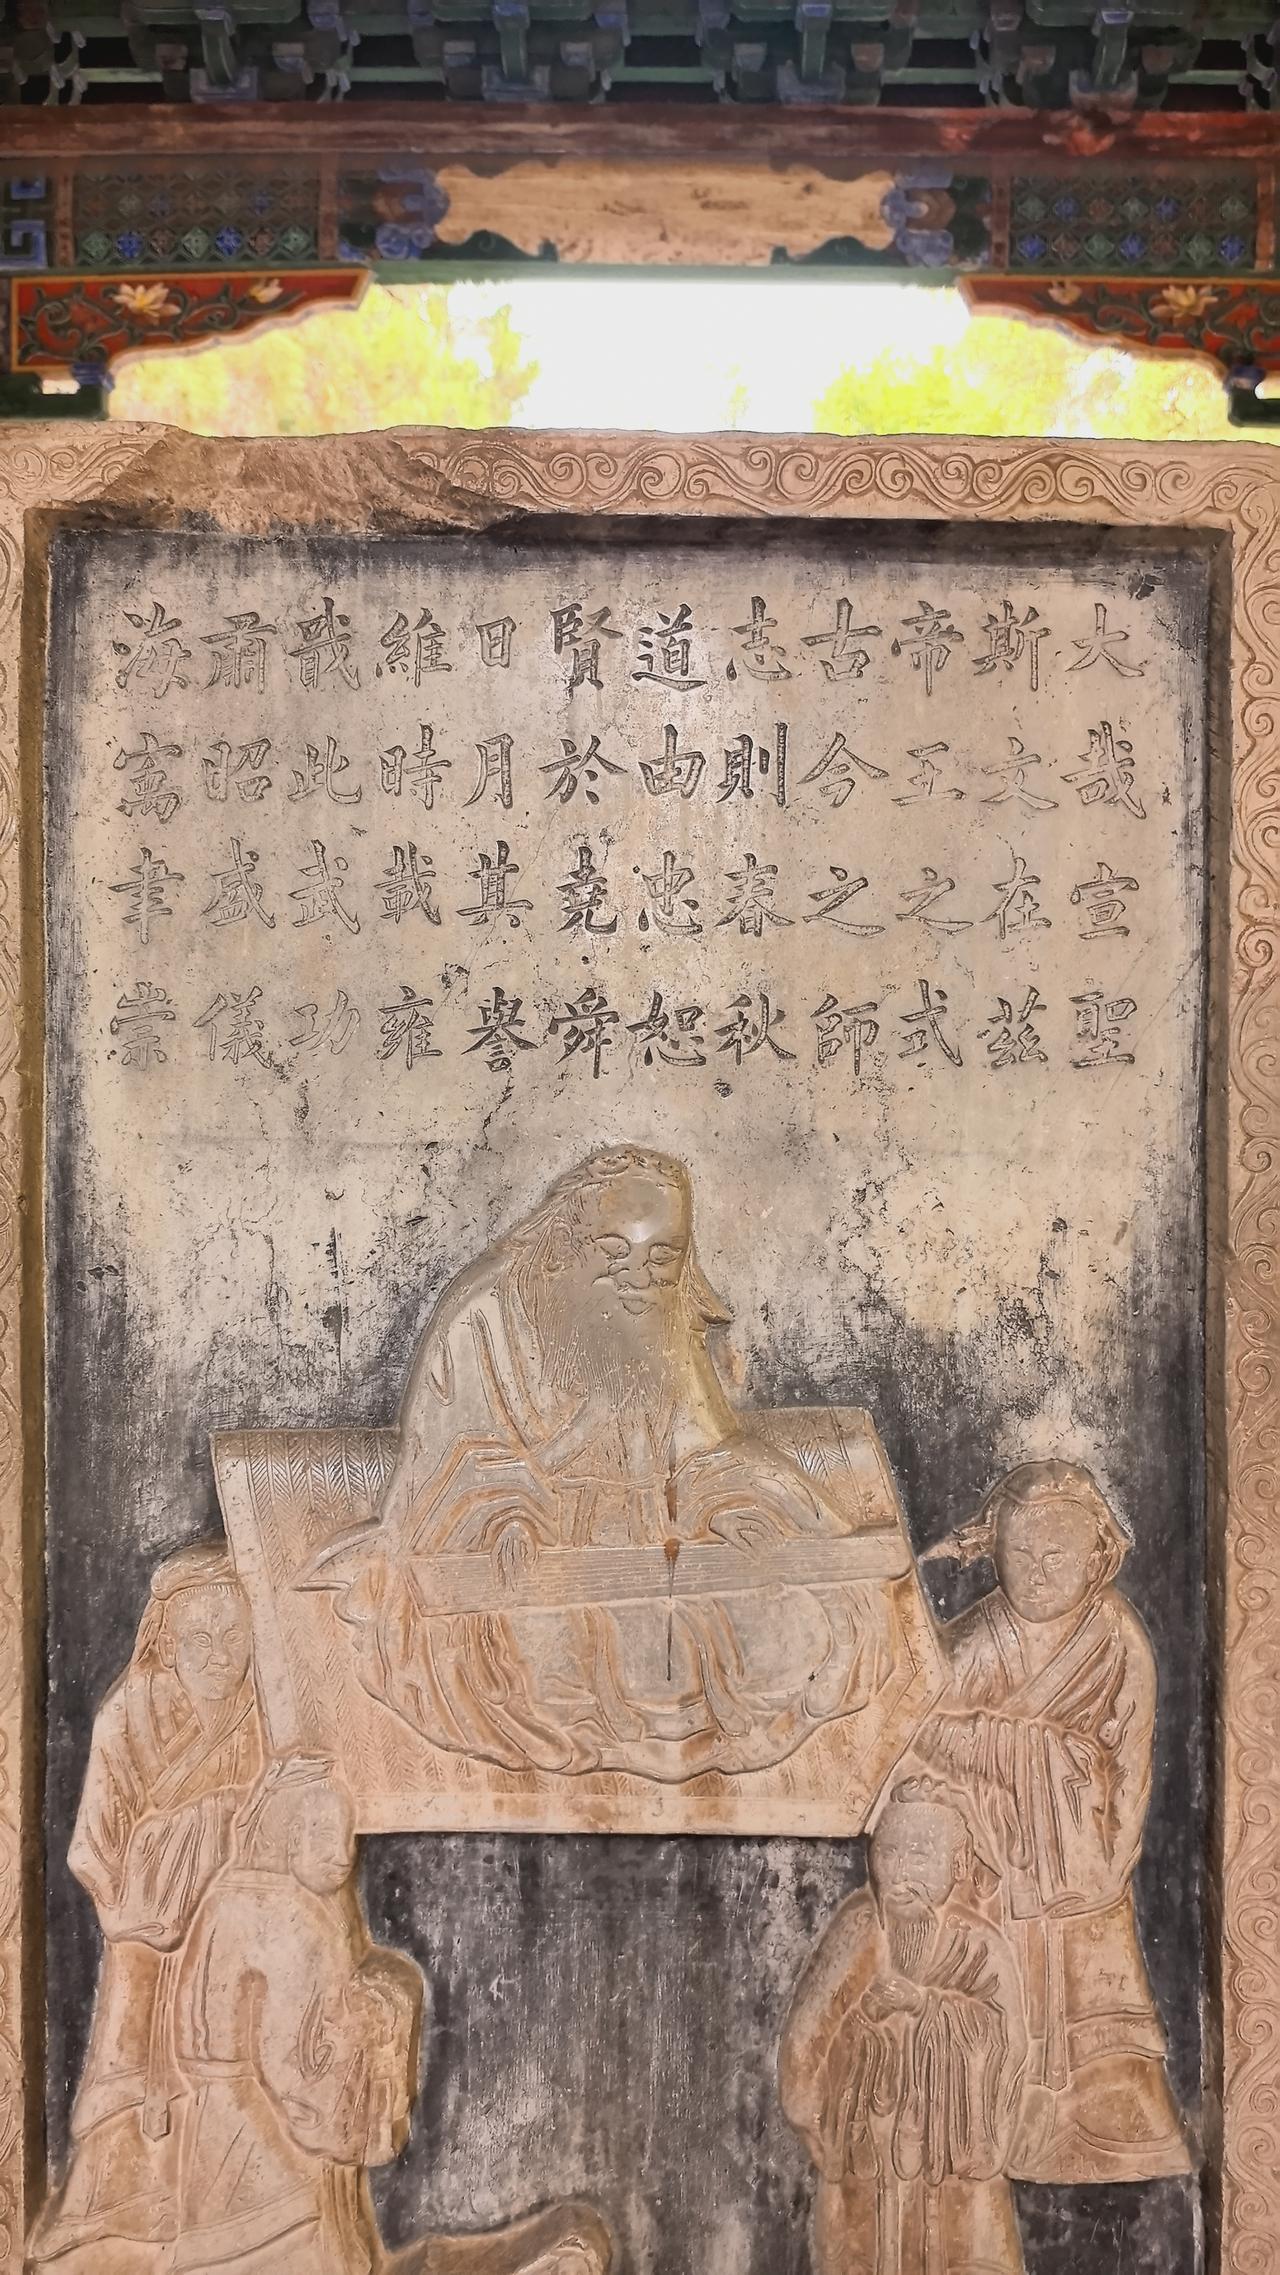 大哉宣聖
斯文在茲
帝王之式
古今之師
志則春秋
道由忠恕
賢於堯舜
日月其譽
維時載雍
戢此武功
肅昭盛儀
海寓聿崇